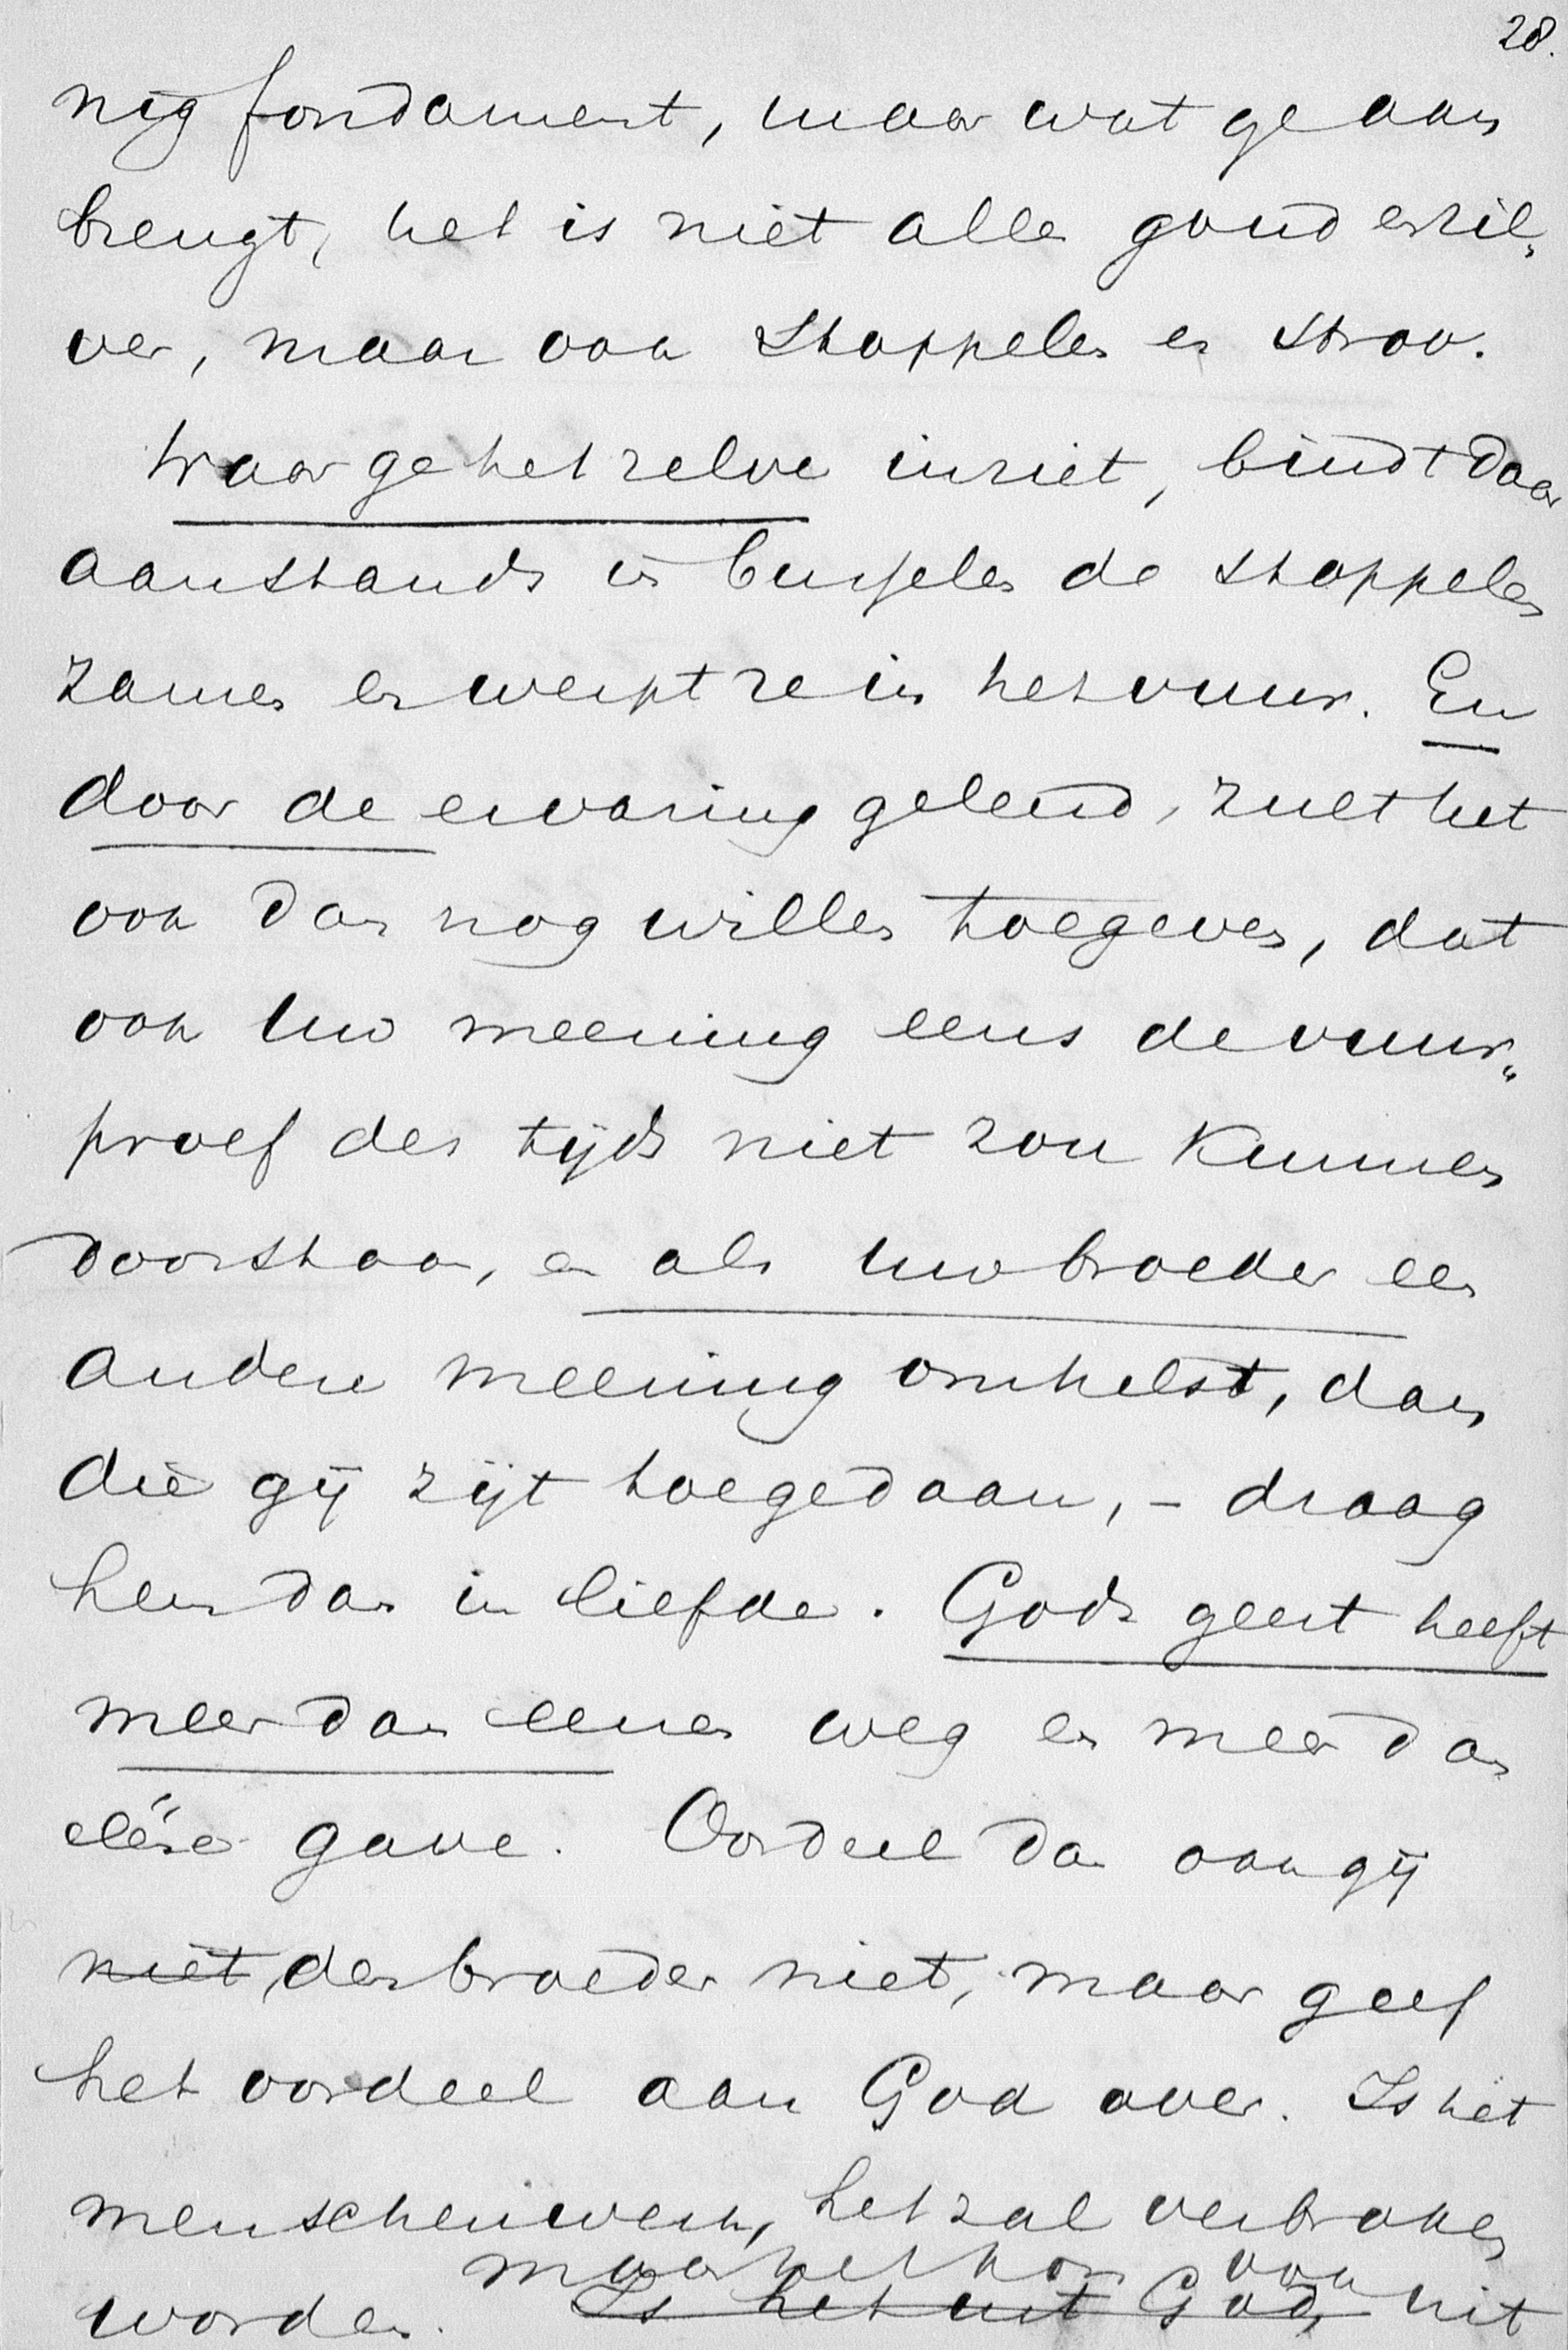 28.
nig fondament, maar wat ge aan
brengt, het is niet alle goud en zil„
ver, maar ook stoppelen en stroo.
Waar ge het zelve inziet, bindt daar
aanstonds in bussels de stoppelen
zamen en werpt ze in het vuur. En
door de ervaring geleerd, zult het
ook dan nog willen toegeven, dat
ook Uw meening eens de vuur„
proef des tijds niet zou kunnen
doorstaan, en als Uw broeder een
andere meening omhelst, dan
die gij zijt toegedaan, – draag
hem dan in liefde. Gods geest heeft
meer dan eenen weg en meer dan
ééne gave. Oordeel dan ook gij
niet, den broeder niet, maar geef
het oordeel aan God over. Is het
menschenwerk, het zal verbroken
maar het kon ook
worden. Is het uit God, uit